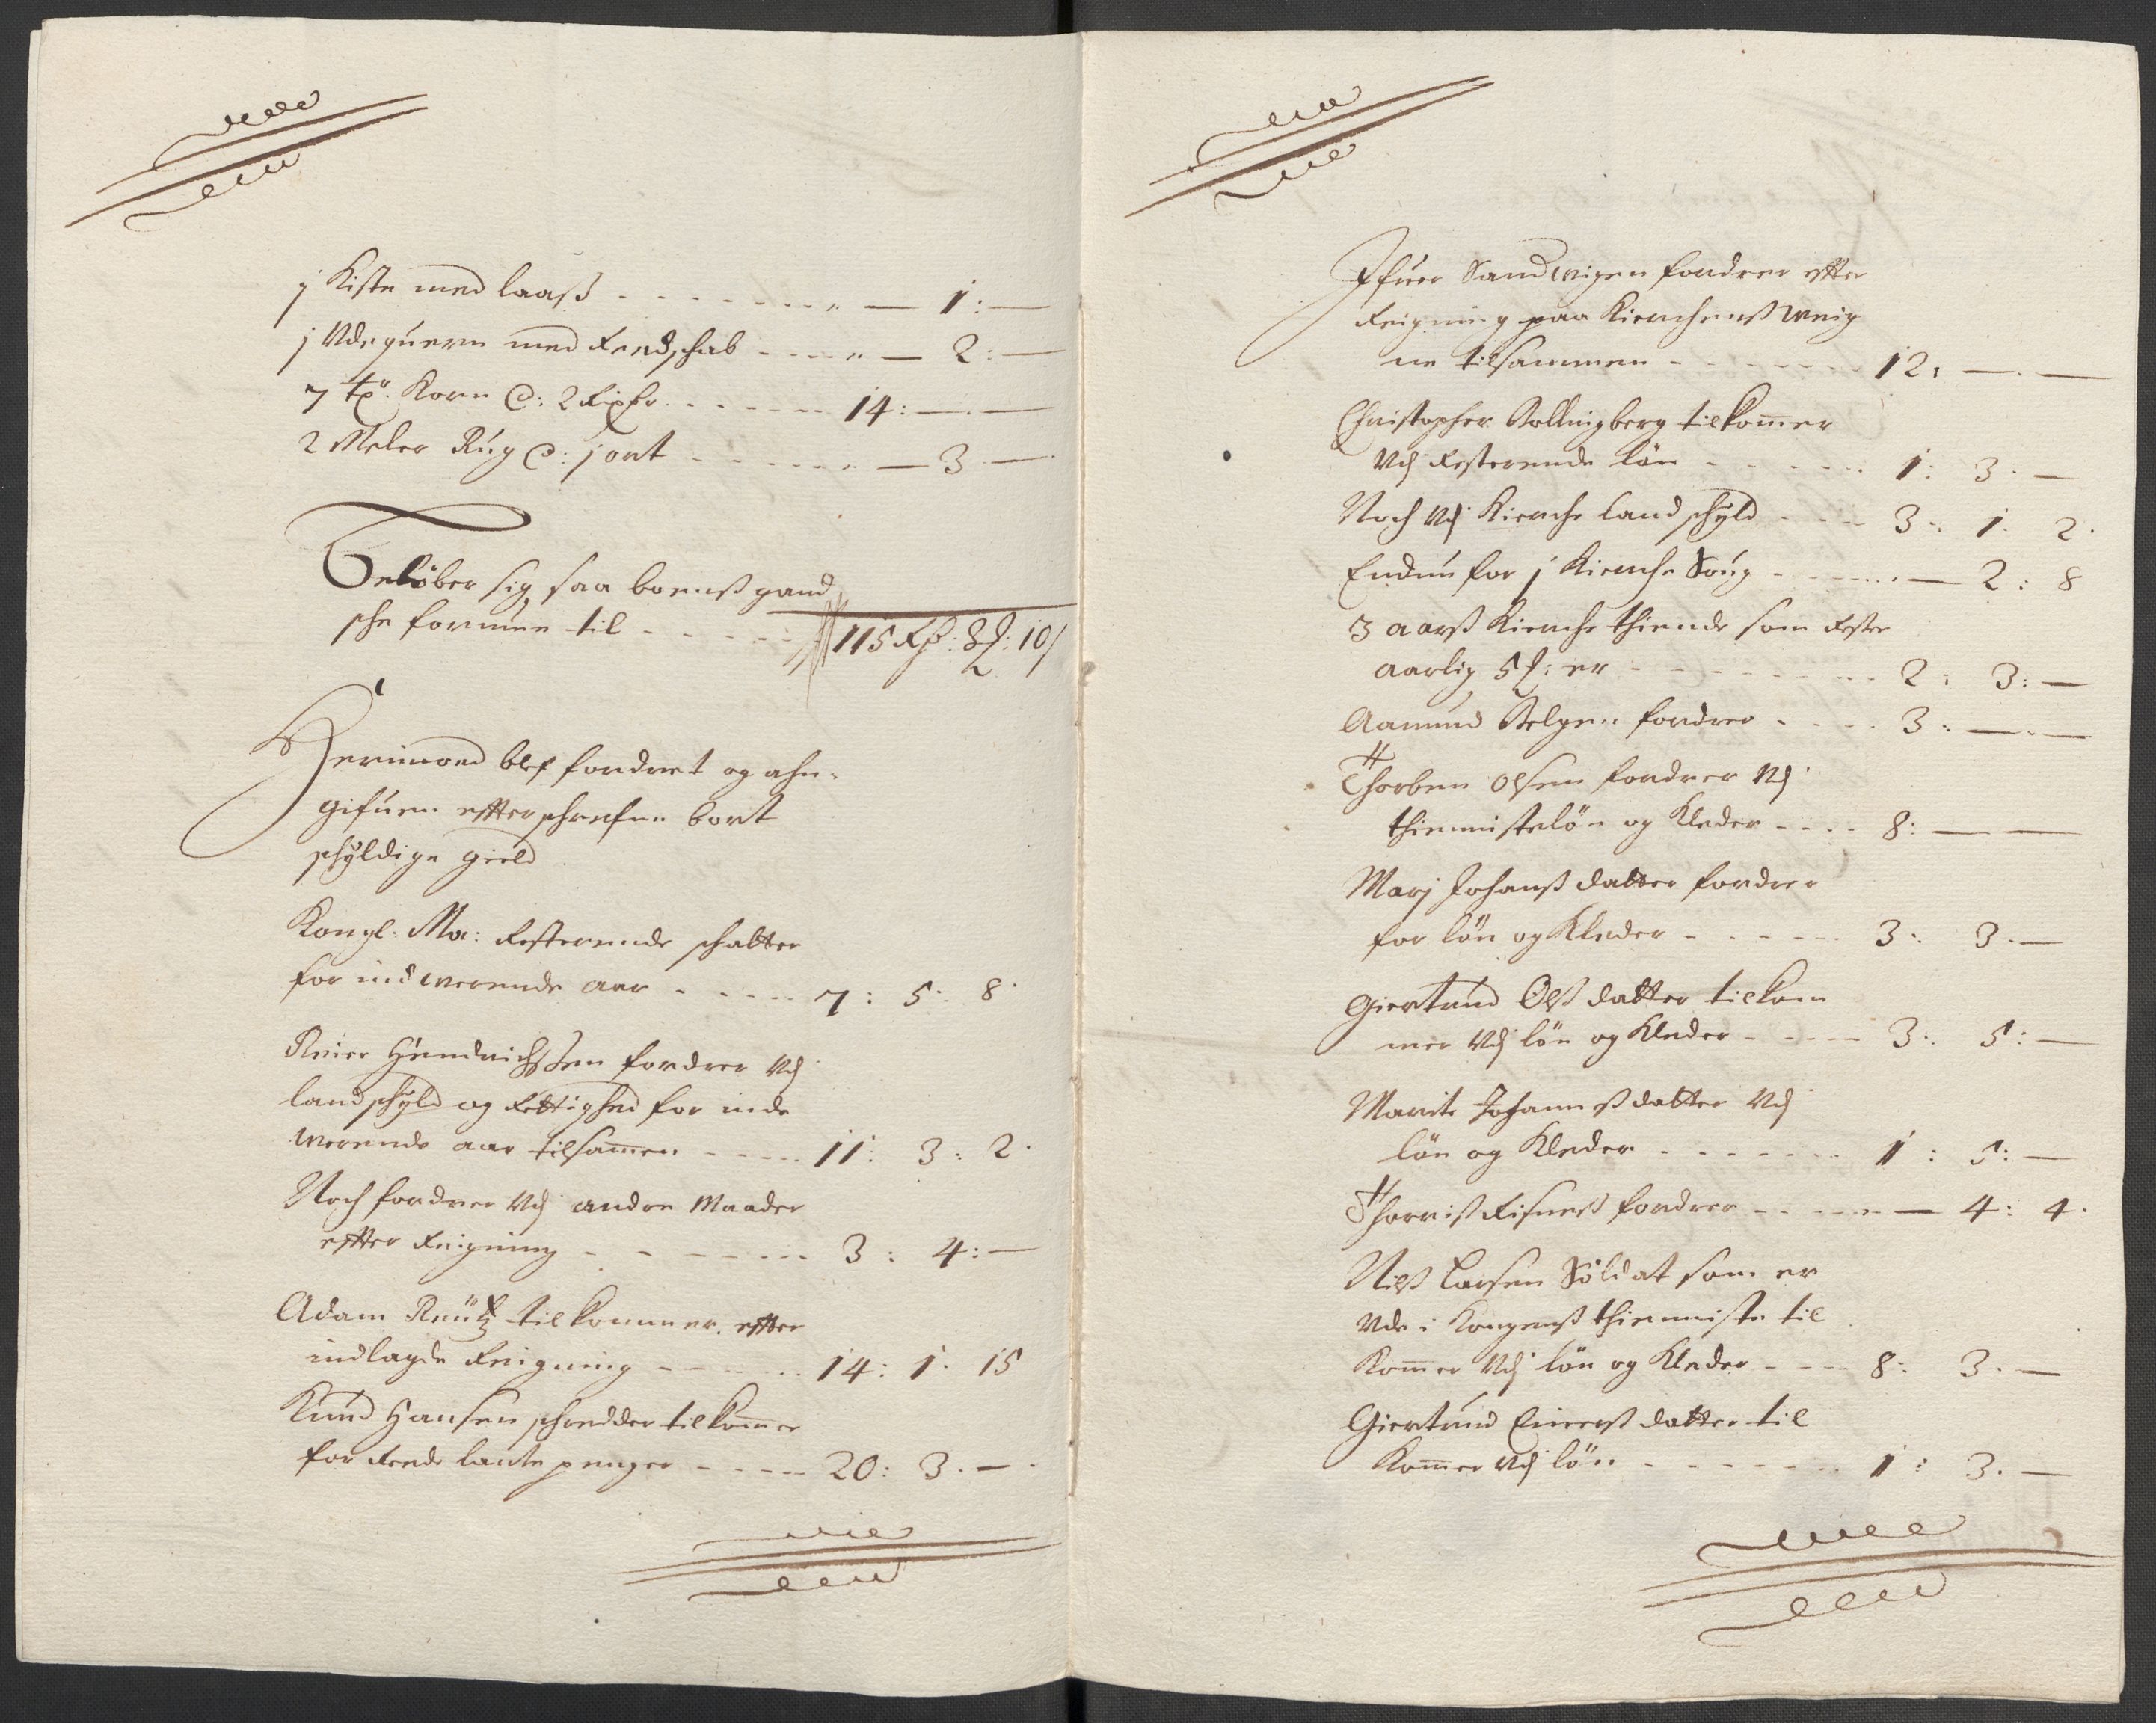 j Kiste med laass - - - - - - - - " — 1: —
j Udquern med Reedschab - - - - " — 2: —
7 tr. Korn @: 2 Rixdr. - - - - - - 14: — —
2 Meler Rug @: j ort - - - - - - " — 3 —
Beløber sig saa boenss gand
sche formue til - - - - - 115 Rdr: 3 : 10
Herimoed blef fordret og ahn-
gifuen effterschrefne bort
schyldige gield
Kongl: Ma: Resterende schatter
for indwerende aar - - - - 7: 5: 8
Reier Hendrichssen fordrer Udj
landschyld og Rettighed for inde
werende aar tilsamen - - - - 11: 3: 2
Noch fordrer Udj andre Maader
effter Reigning - - - - - - 3: 4: —
Adam tilkommer effter
indlagde Reigning - - - - - 14: 1: 15
Knud Hansen schredder tilkomer
for Rede laante penger - - - - 20: 3. —
Ifuer Sandwigen fordrer effter
Reigning paa Kierchenss weig
ne tilsammen - - - - - - 12: — —
Christopher Bollingberg tilkomer
Udj Resterende løn - - - - - 1: 3. —
Noch Udj Kierche landschyld - - - - 3: 1. 2.
Endnu for j Kierche Soug - - - - - — 2: 8
3 aarss Kierche thiende som Rester
aarlig 5 : er - - - - - - - 2: 3: —
Aamund Belgen fordrer - - - - 3: — —
Thorben Olsen fordrer Udj
thiennisteløn og Kleder - - - - 8: — —
Marj Johanss datter fordrer
for løn og Kleder - - - - - - 3: 3. —
Giertrud Olss datter tilkom
mer Udj løn og Kleder - - - - - 3: 5: —
Marite Johannssdatter Udj
løn og Kleder - - - - - - - 1: 5: —
Thoriss Risness fordrer - - - - - — 4: 4.
Nilss Larsen Soldat som er
Ude i Kongenss thienniste til
Komer Udj løn og Kleder - - - - 8: 3. —
Giertrud Einerss datter til
Komer Udj løn - - - - - - - 1: 3. —